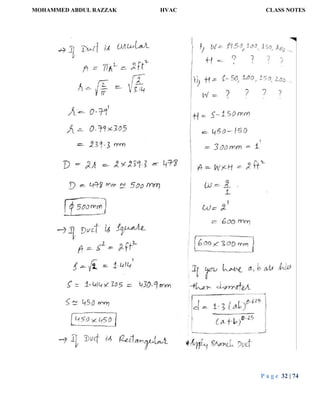 MOHAMMED ABDUL RAZZAK HVAC CLASS NOTES
→ If Duct is Circular
A = πr² = 2ft²
r = √(2/π) = √(2/3.14)
r = 0.79'
r = 0.79 x 305
= 239.3 mm
D = 2r = 2 x 239.3 = 478
D = 478 mm ≃ 500 mm
ϕ 500mm
→ If Duct is Square
A = S² = 2ft²
S = √2 = 1.414'
S = 1.414 x 305 = 430.9mm
S ≃ 450 mm
450 x 450
→ If Duct is Rectangular
H = ? ? ? ?
W = ? ? ? ?
H = S - 150mm
= 450 - 150
= 300mm = 1'
A = W x H = 2 ft²
W = 2/1
W = 2'
= 600 mm
600 x 300 mm
If you have a, b
than diameter
d = 1.3 (ab)^0.625
(a+b)^0.25
Branch Duct
Page 32 | 74